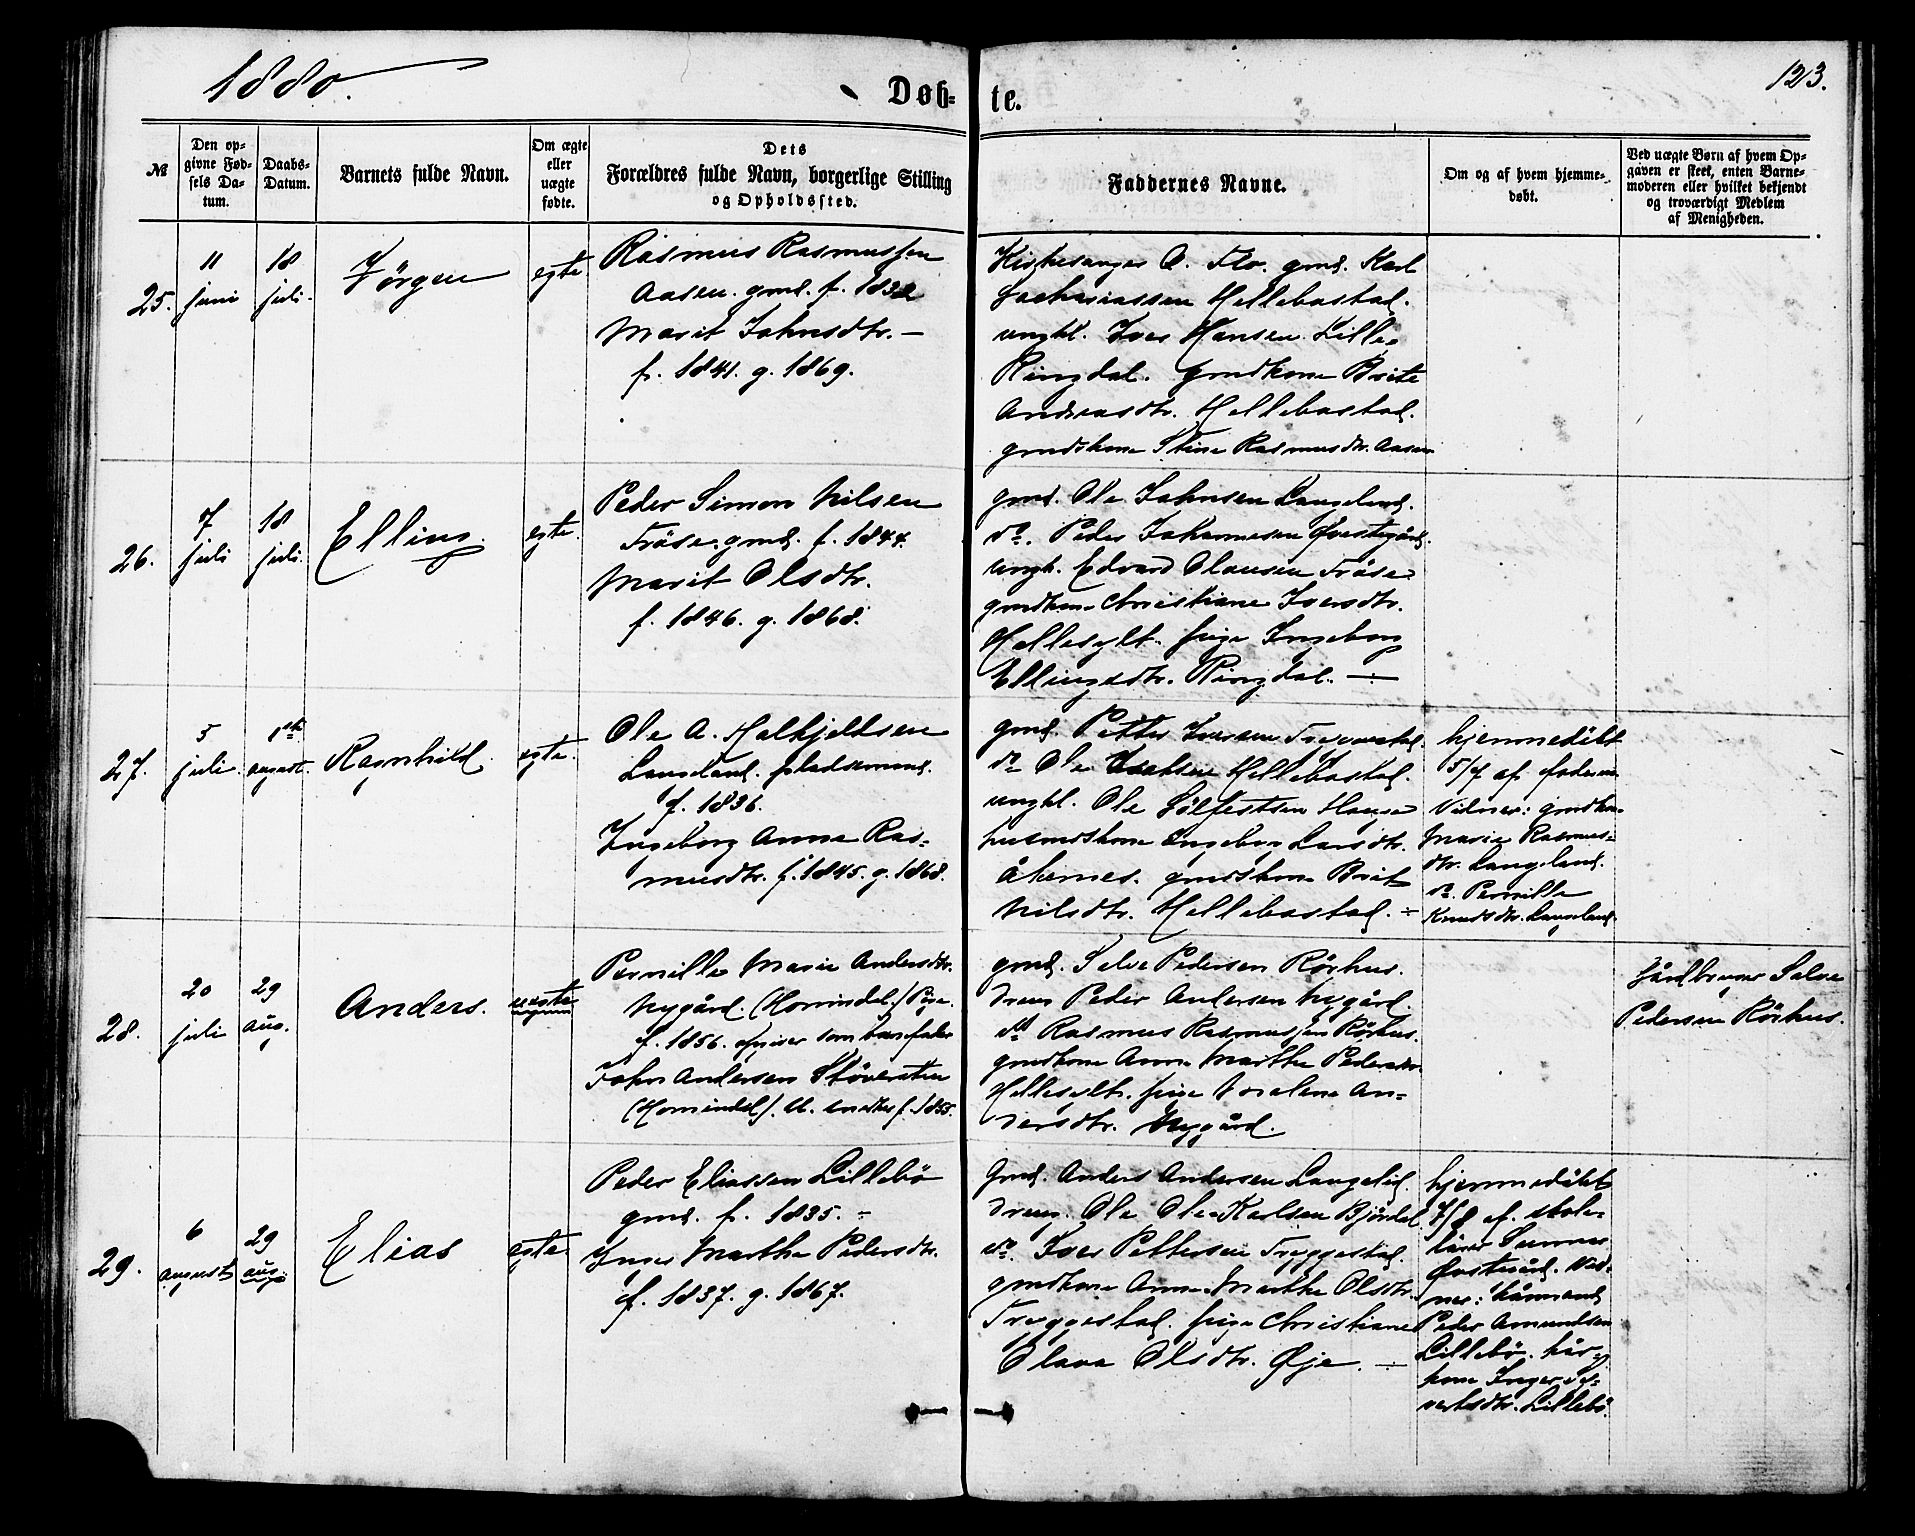 1880.
Døb-
te.
123.
№
Den op-
givne Fød-
sels Da-
tum.
Daabs-
Datum.
Barnets fulde Navn.
Om ægte
eller
uægte
fødte.
Dets
Forældres fulde Navn, borgerlige Stilling
og Opholdssted.
Faddernes Navne.
Om og af hvem hjemme-
døbt.
Ved uægte Børn af hvem Op-
gaven er skeet, enten Barne-
moderen eller hvilket bekjendt
og troværdigt Medlem
af Menigheden.
25.
11
juni
18
juli.
Jörgen
egte
Rasmus Rasmussen
Aasen. gmd. f. 1832
Marit Johnsdtr. —
f. 1841. g. 1869.
Kirkesanger O. Flo. gmd. Karl
Zachariassen Hellebostad.
ungkl. Iver Hansen Lille-
Ringdal. gmdkone Brite
Andreasdtr. Hellebostad.
gmdskone Stine Rasmusdtr. Aasen
26.
7
juli
18
juli.
Elling.
egte.
Peder Simon Nilsen
Fröse. gmd. f. 1844.
Marit Olsdtr.
f. 1846. g. 1868.
gmd. Ole Johnsen Langeland.
do. Peder Johannesen Øvstegård.
ungk. Edvard Olausen Fröse
gmdkone Christiane Iversdtr.
Hellesylt. pige Ingeborg
Ellingsdtr. Ringdal. —
27.
5
juli.
1ste
august.
Ragnhild.
egte.
Ole A. Halkjeldsen
Langeland. pladsemand.
f. 1836.
Ingeborg Anna Ras-
musdtr. f. 1845. g. 1868.
gmd. Petter Iversen Tryggestad.
do Ole Hellebostad.
ungkl. Ole Sölfestsen Hauge
husmdskone Ingeborg Larsdtr.
Åkernes. gmdskone Brit
Nilsdtr. Hellebostad. ÷
hjemmedöbt
5/7 af faderen
Vidner: gmdkone
Marie Rasmus-
dtr. Langeland.
do. Pernille
Knudsdtr. Langeland.
28.
20
juli
29
aug.
Anders.
uegte
Pernille Marie Andersdtr.
Nygård. (Hornindal.) Pige.
f. 1856. opgiver som barnefader
John Andersen Støverstein
(Hornindal). U. f. 1855.
gmd. Salve Pedersen Rörhus.
dreng Peder Andersen Nygård
do Rasmus Rasmussen Rörhus.
gmdkone Anne Marthe Pedersdtr.
Hellesylt. pige An-
dersdtr. Nygård.
Gårdbruger Salve
Pedersen Rörhus.
29.
6
august
29
aug.
Elias
egte.
Peder Eliassen Lillebö
gmd. f. 1835. -
Inger Marthe Pedersdtr.
f. 1837. g. 1867.
Gmd. Anders Andersen Langelid.
dreng. Ole Ole-Karlsen Björdal
do. Iver Pettersen Tryggestad.
gmdkone Anne-Marthe Olsdtr.
Tryggestad. pige Christiane
Olava Olsdtr. Øje. —
hjemmedöbt
7/8 af skole-
lærer
Øvstegård. Vid-
ner: kårmand
Peder Amundsen
Lillebö. kår-
kone Inger
Lillebö.